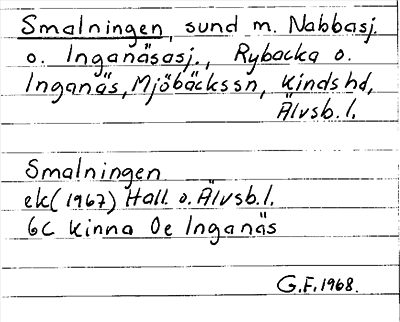 Smalningen, sund m. Nabbasj.
o. Inganäsasj., Rybacka o.
Inganäs, Mjöbäckssn, Kinds hd,
Älvsb. l.
Smalningen
ek (1967) Hall. o. Älvsb. l.
6C Kinna 0e Inganäs
G.F. 1968.